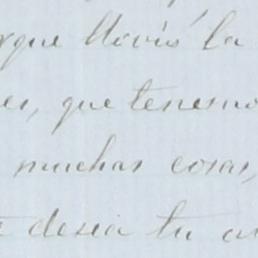 rque llovió la
es, que tenemo
muchas cosas,
desea tu